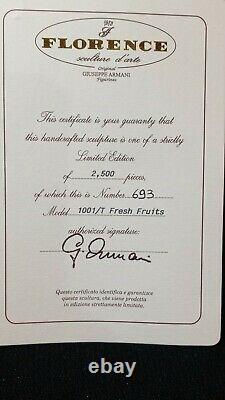 FLORENCE
sculture d'arte
Original
GIUSEPPE ARMANI
Figurines
This certificate is your guaranty that
this handcrafted sculpture is one of a strictly
Limited Edition
of 2,500 pieces,
of which this is Number 693
Model 1001/T Fresh Fruits
authorized signature:
G. Armani
Questo certificato identifica e garantisce
questa scultura, che viene prodotta
in edizione strettamente limitata.